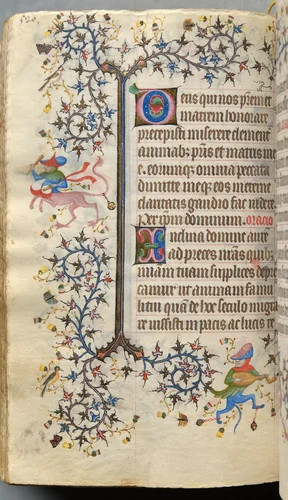 Deus qui nos prem et
matrem honorare
precepisti miserere clement
animabz pris et matris me
e. eorumqz omnia peccata
dimitte meqz eos in eterne
claritatis gaudio fac videre.
Per xpm dominum. oracio
Inclina domine aure
ad preces nras quibz
miam tuam supplices depre
camur ut animam famu
li tui quam de hoc seculo migra
re iussisti in pacis ac lucis re